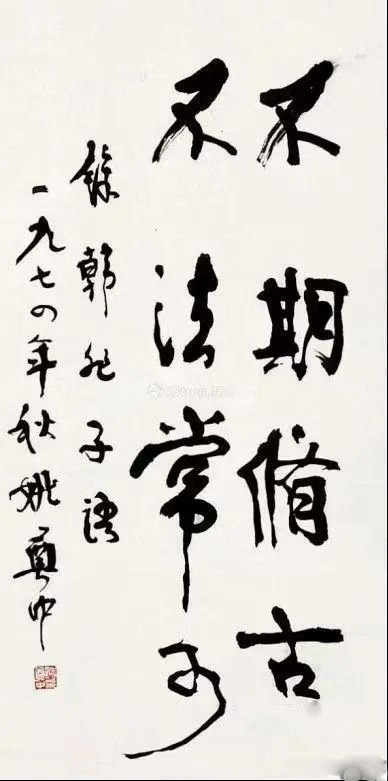 不期脩古
不法常可
錄韓非子語
一九七四年秋姚奠中